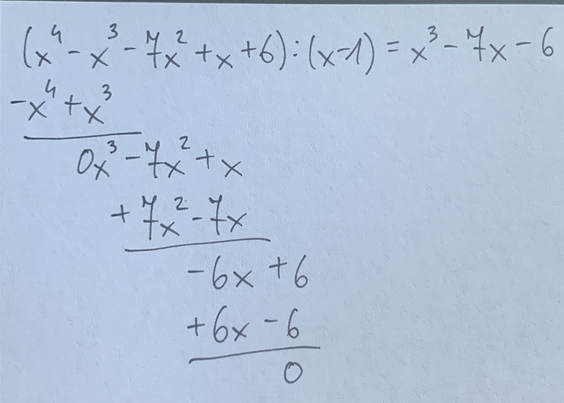 (x⁴ - x³ - 7x² + x + 6) : (x-1) = x³ - 7x - 6
-x⁴ + x³
0x³ - 7x² + x
+ 7x² - 7x
-6x + 6
+6x - 6
0